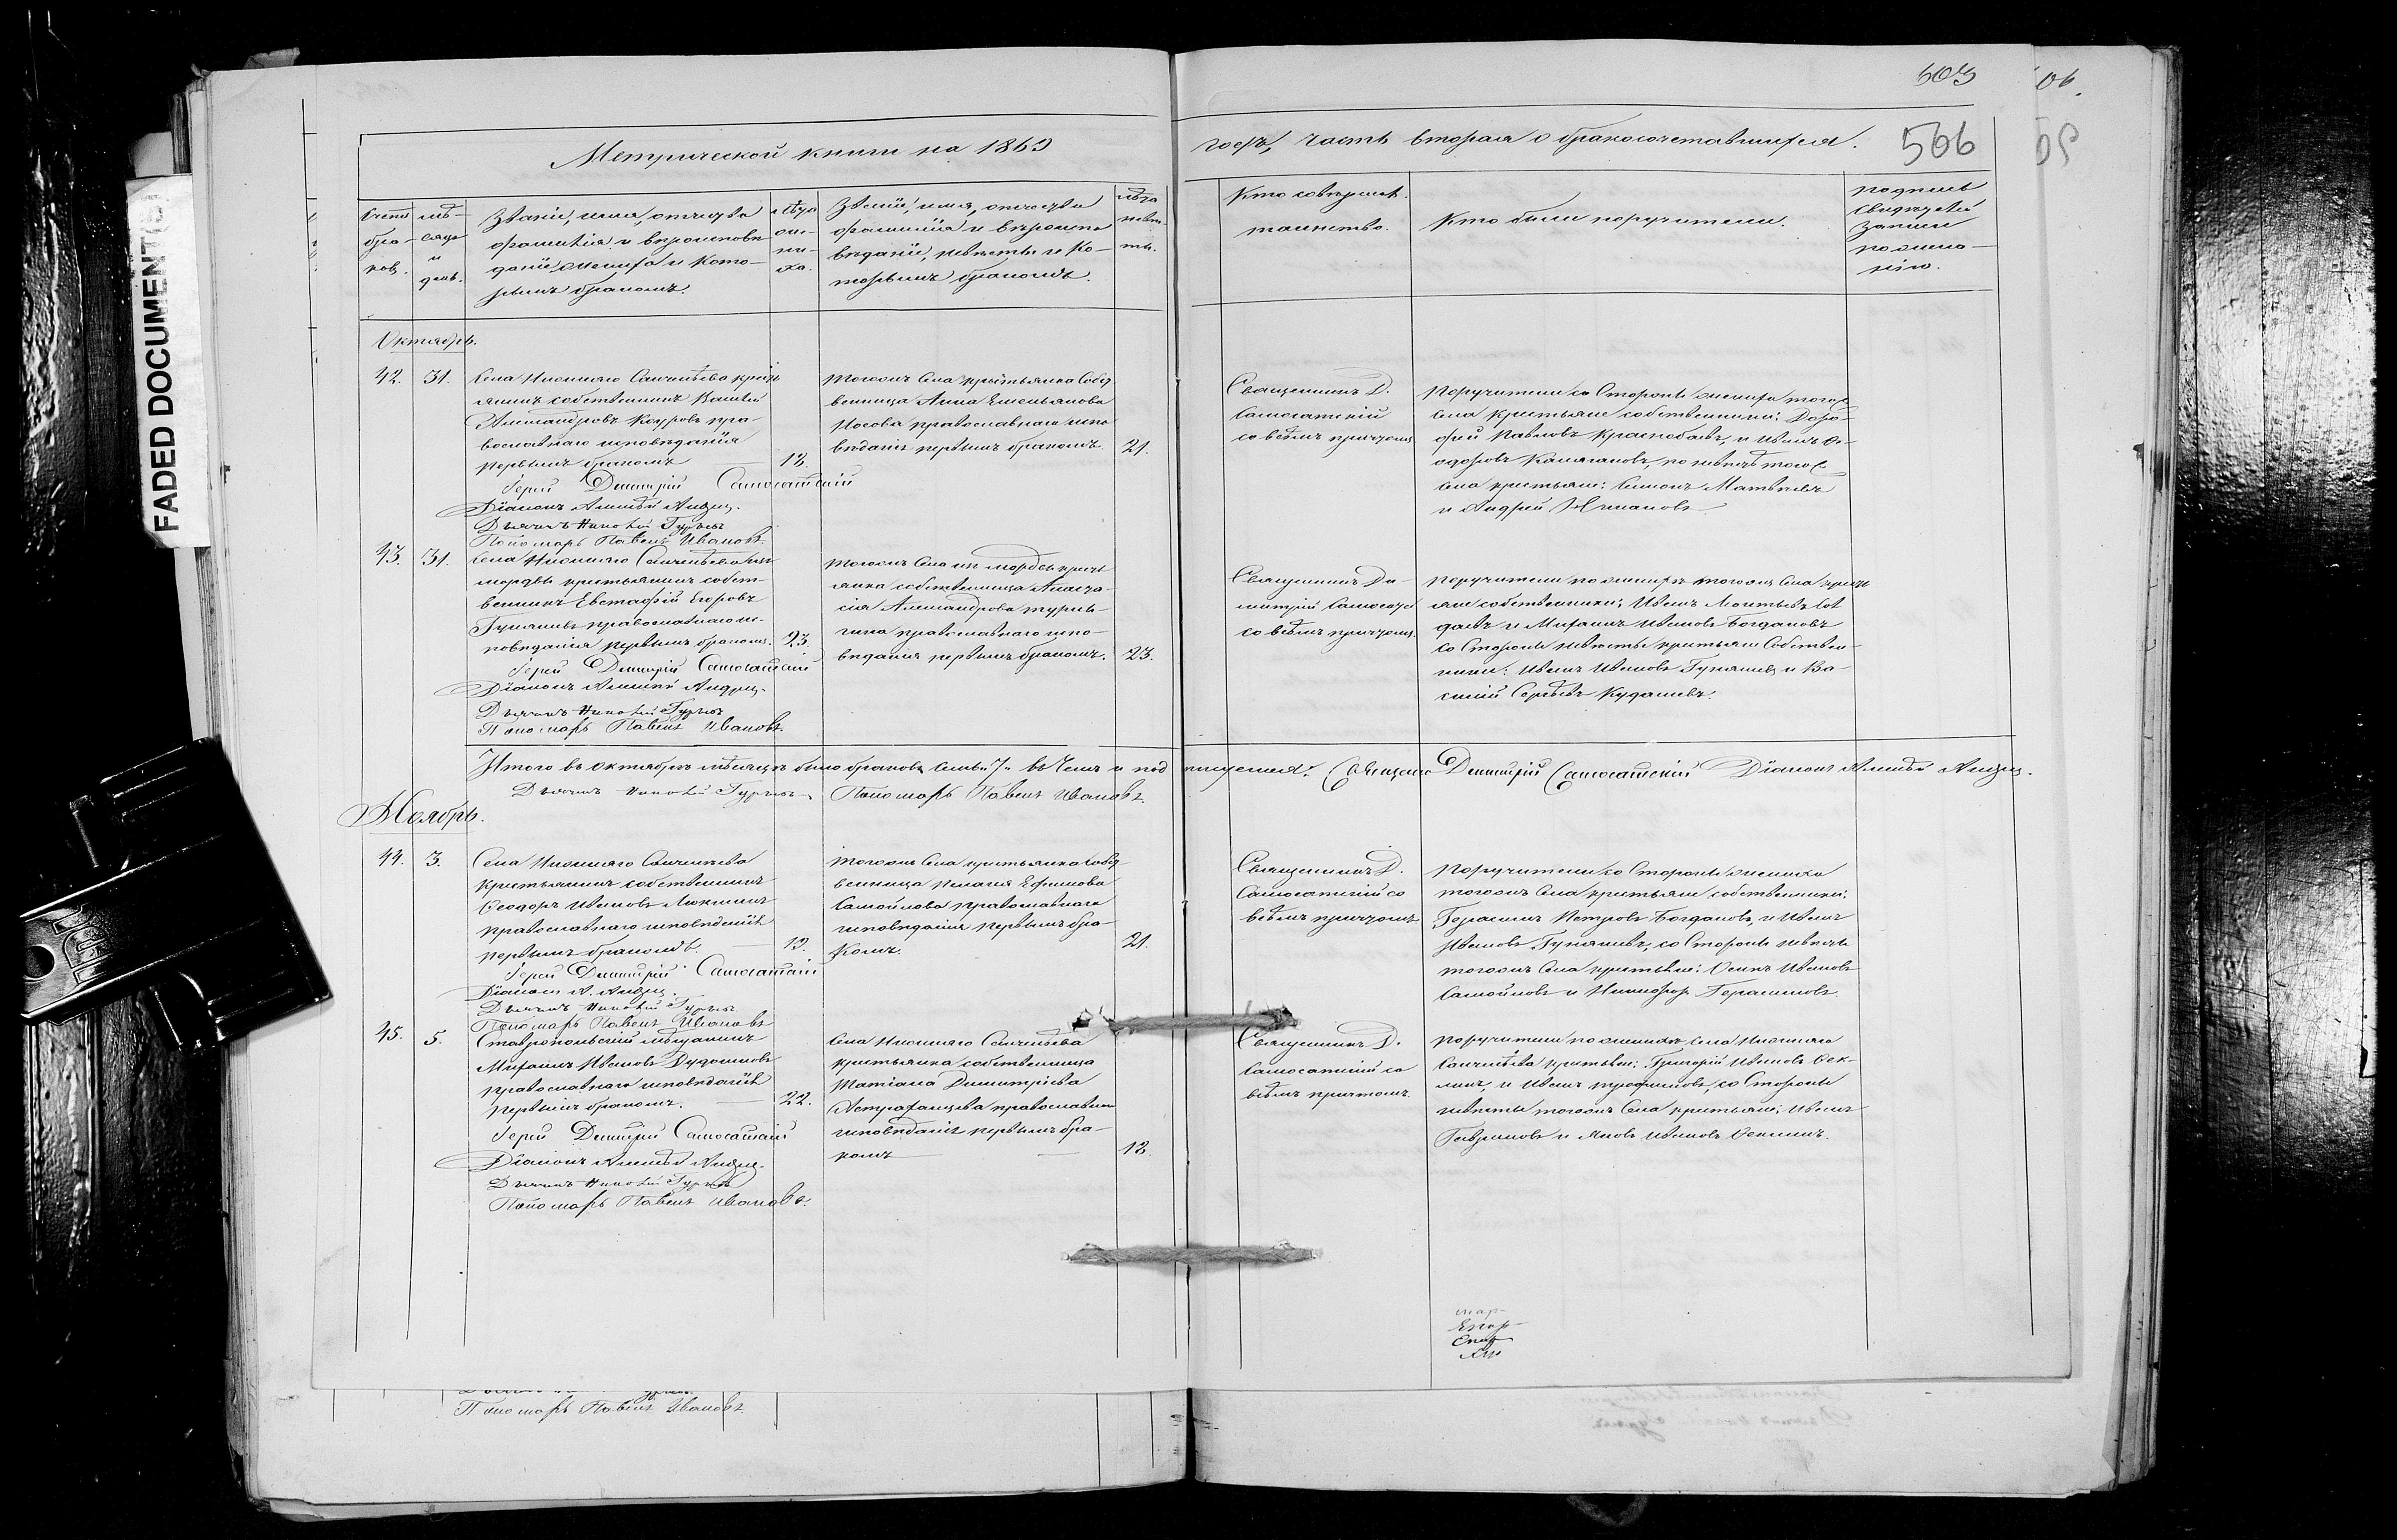 503
06.
Метрической книги на 1869
годъ, часть вторая о бракосочетавшихся.
566
Счетъ бра-ковъ.
мѣ-сяцъ и день.
Званіе, имя, отчество
фамилія и вѣроисповѣ
даніе жениха и кото-
рымъ бракомъ.
лѣта
же-
ни-
ха.
Званіе, имя, отчество
фамилія и вѣроиспо
вѣданіе, невѣсты и ко-
торымъ бракомъ.
лѣта
невѣс-
ты.
Кто совершал.
таинство.
Кто были поручители.
подпись
свидѣтелей
записи
по жела-
нію.
Октябрь.
42. 31.
Села Нижняго Санчелѣева крест
янинъ собственникъ
Александровъ пра-
вославнаго исповѣданія
первымъ бракомъ — 18.
Іерей Димитрій Самосатскій
Діаконъ Алексѣй
Дьячекъ Николай Гурьевъ
Пономарь Павелъ Ивановъ.
тогожъ села крестьянка собст
венница Анна Емельянова
Носова православнаго испо
вѣданія первымъ бракомъ. 21.
Священникъ Д.
Самосатскій
со всѣмъ причтомъ
Поручители со стороны жениха тогож
села крестьяне собственники: Доро-
фей Павловъ Краснобаевъ, и Иванъ Ѳе-
одоровъ по невѣстѣ того
села крестьяне: Симонъ Матвѣевъ
и Андрей
43. 31.
Села Нижняго Санчелѣева изъ
мордвы крестьянинъ собст-
венникъ Евстафій Егоровъ
православнаго ис-
повѣданія первымъ бракомъ. 23.
Іерей Димитрій Самосатскій
Діаконъ Алексѣй
Дьячекъ Николай Гурьевъ
Пономарь Павелъ Ивановъ.
тогожъ села изъ мордвы кресть
янка собственница Анаста-
сія Александрова
православнаго испо-
вѣданія первымъ бракомъ. 23.
Священникъ Ди-
митрій Самосатс
со всѣмъ причтомъ.
поручители по женихѣ тогожъ села крест
яне собственники: Иванъ Леонтьевъ
и Михаилъ Ивановъ Богдановъ
со стороны невѣсты крестьяне собствен-
ники: Иванъ Ивановъ и Ва-
силій Сергѣевъ Кудашевъ.
Итого въ октябрѣ мѣсяцѣ было браковъ семь „7„ въ чемъ и под
писуемся: Священ Димитрій Самосатскій Діаконъ Алексѣй
Дьячекъ Николай Гурьевъ Пономарь Павелъ Ивановъ.
Ноябрь.
44. 3.
Села Нижняго Санчелѣева
крестьянинъ собственникъ
Ѳеодоръ Ивановъ
православнаго исповѣданія
первымъ бракомъ. — 19.
Іерей Димитрій Самосатскій
Діаконъ А.
Дьячекъ Николай Гурьевъ
Пономарь Павелъ Ивановъ
тогожъ села крестьянка собст
венница Пелагея Ефимова
Самойлова православнаго
исповѣданія первымъ бра-
комъ. 21.
Священникъ Д.
Самосатскій со
всѣмъ причтомъ.
Поручители со стороны жениха
тогожъ села крестьяне собственники:
Герасимъ Петровъ Богдановъ, и Иванъ
Ивановъ со стороны невѣсты
тогожъ села крестьяне: Осипъ Ивановъ
Самойловъ и Никифоръ Герасимовъ.
45. 5.
Ставропольскій мѣщанинъ
Михаилъ Ивановъ
православнаго исповѣданія
первымъ бракомъ. — 22.
Іерей Димитрій Самосатскій
Діаконъ Алексѣй
Дьячекъ Николай Гурьевъ
Пономарь Павелъ Ивановъ.
Села Нижняго Санчелѣева
крестьянка собственница
Татіана Димитріева
Астраханцева православнаго
исповѣданія первымъ бра-
комъ — 18.
Священникъ Д.
Самосатскій со
всѣмъ причтомъ.
поручители по женихѣ села Нижняго
Санчелѣева крестьяне: Григорій Ивановъ
и Иванъ Трофимовъ, со стороны
невѣсты тогожъ села крестьяне: Иванъ
Гавриловъ и Яковъ Ивановъ
Пономарь Павелъ Ивановъ
FADED DOCUMENT(S)